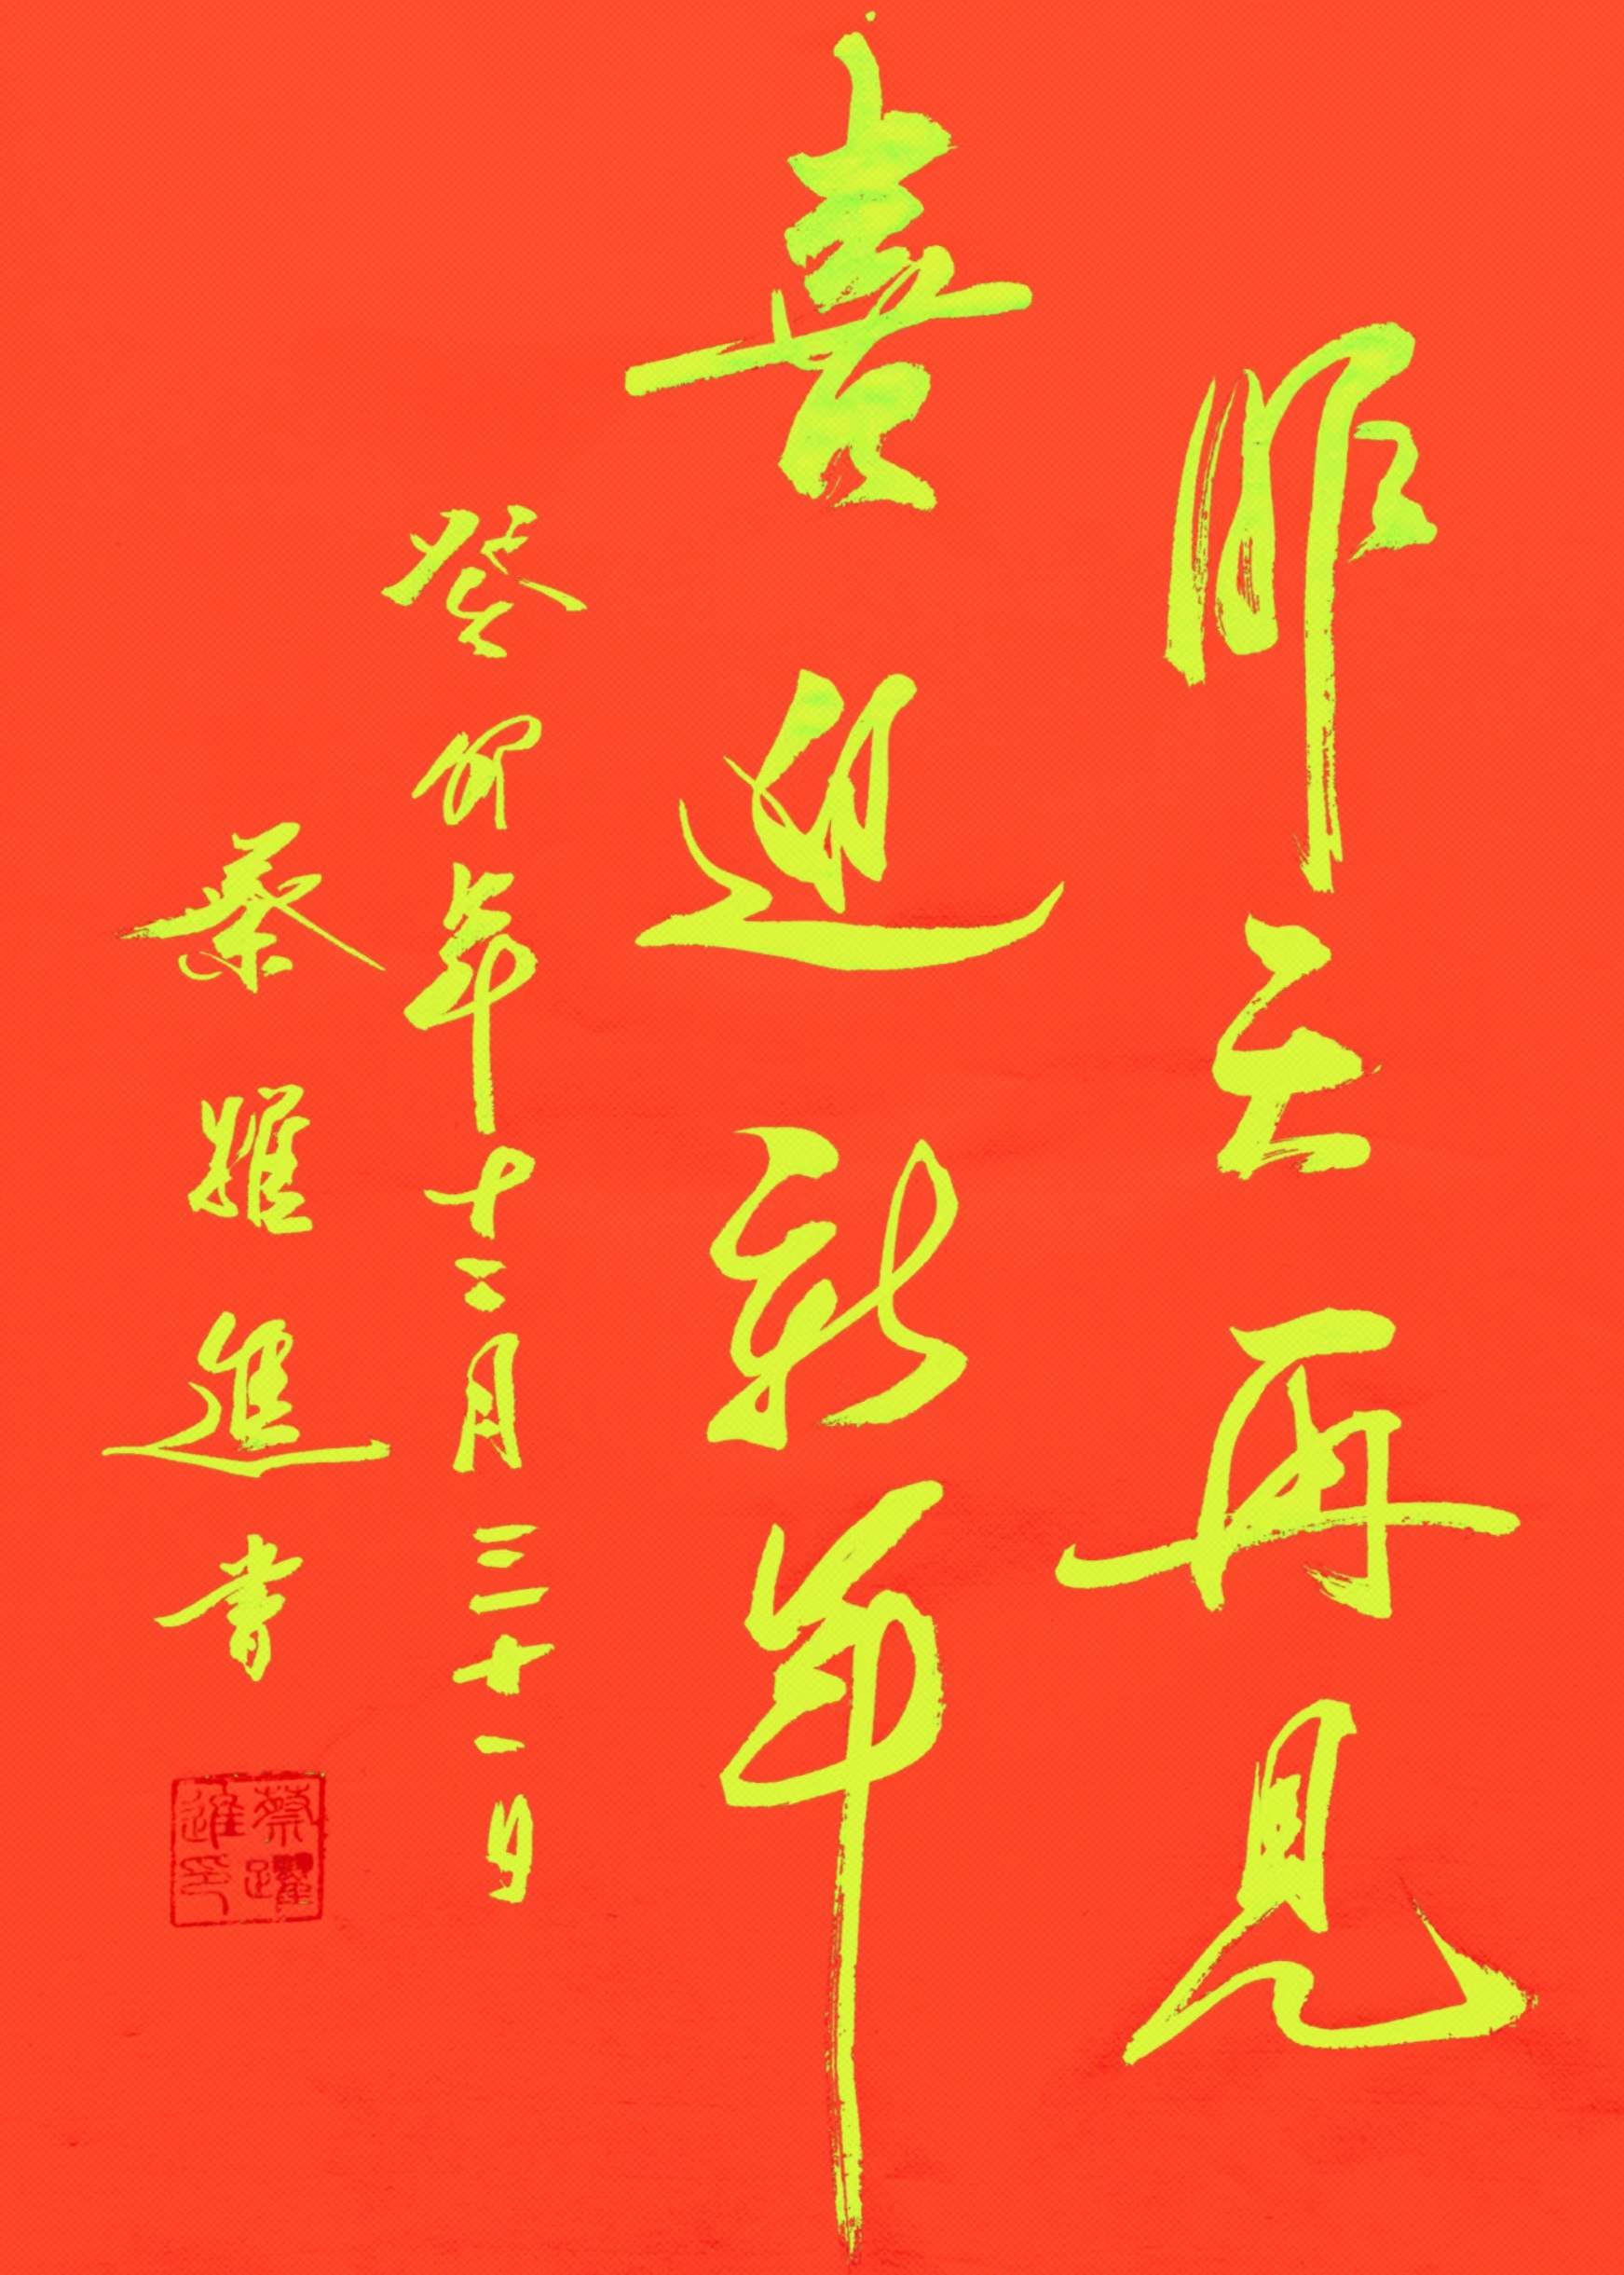 昨天再見
喜迎新年
癸卯年十二月三十一日
蔡躍進書
蔡躍進印